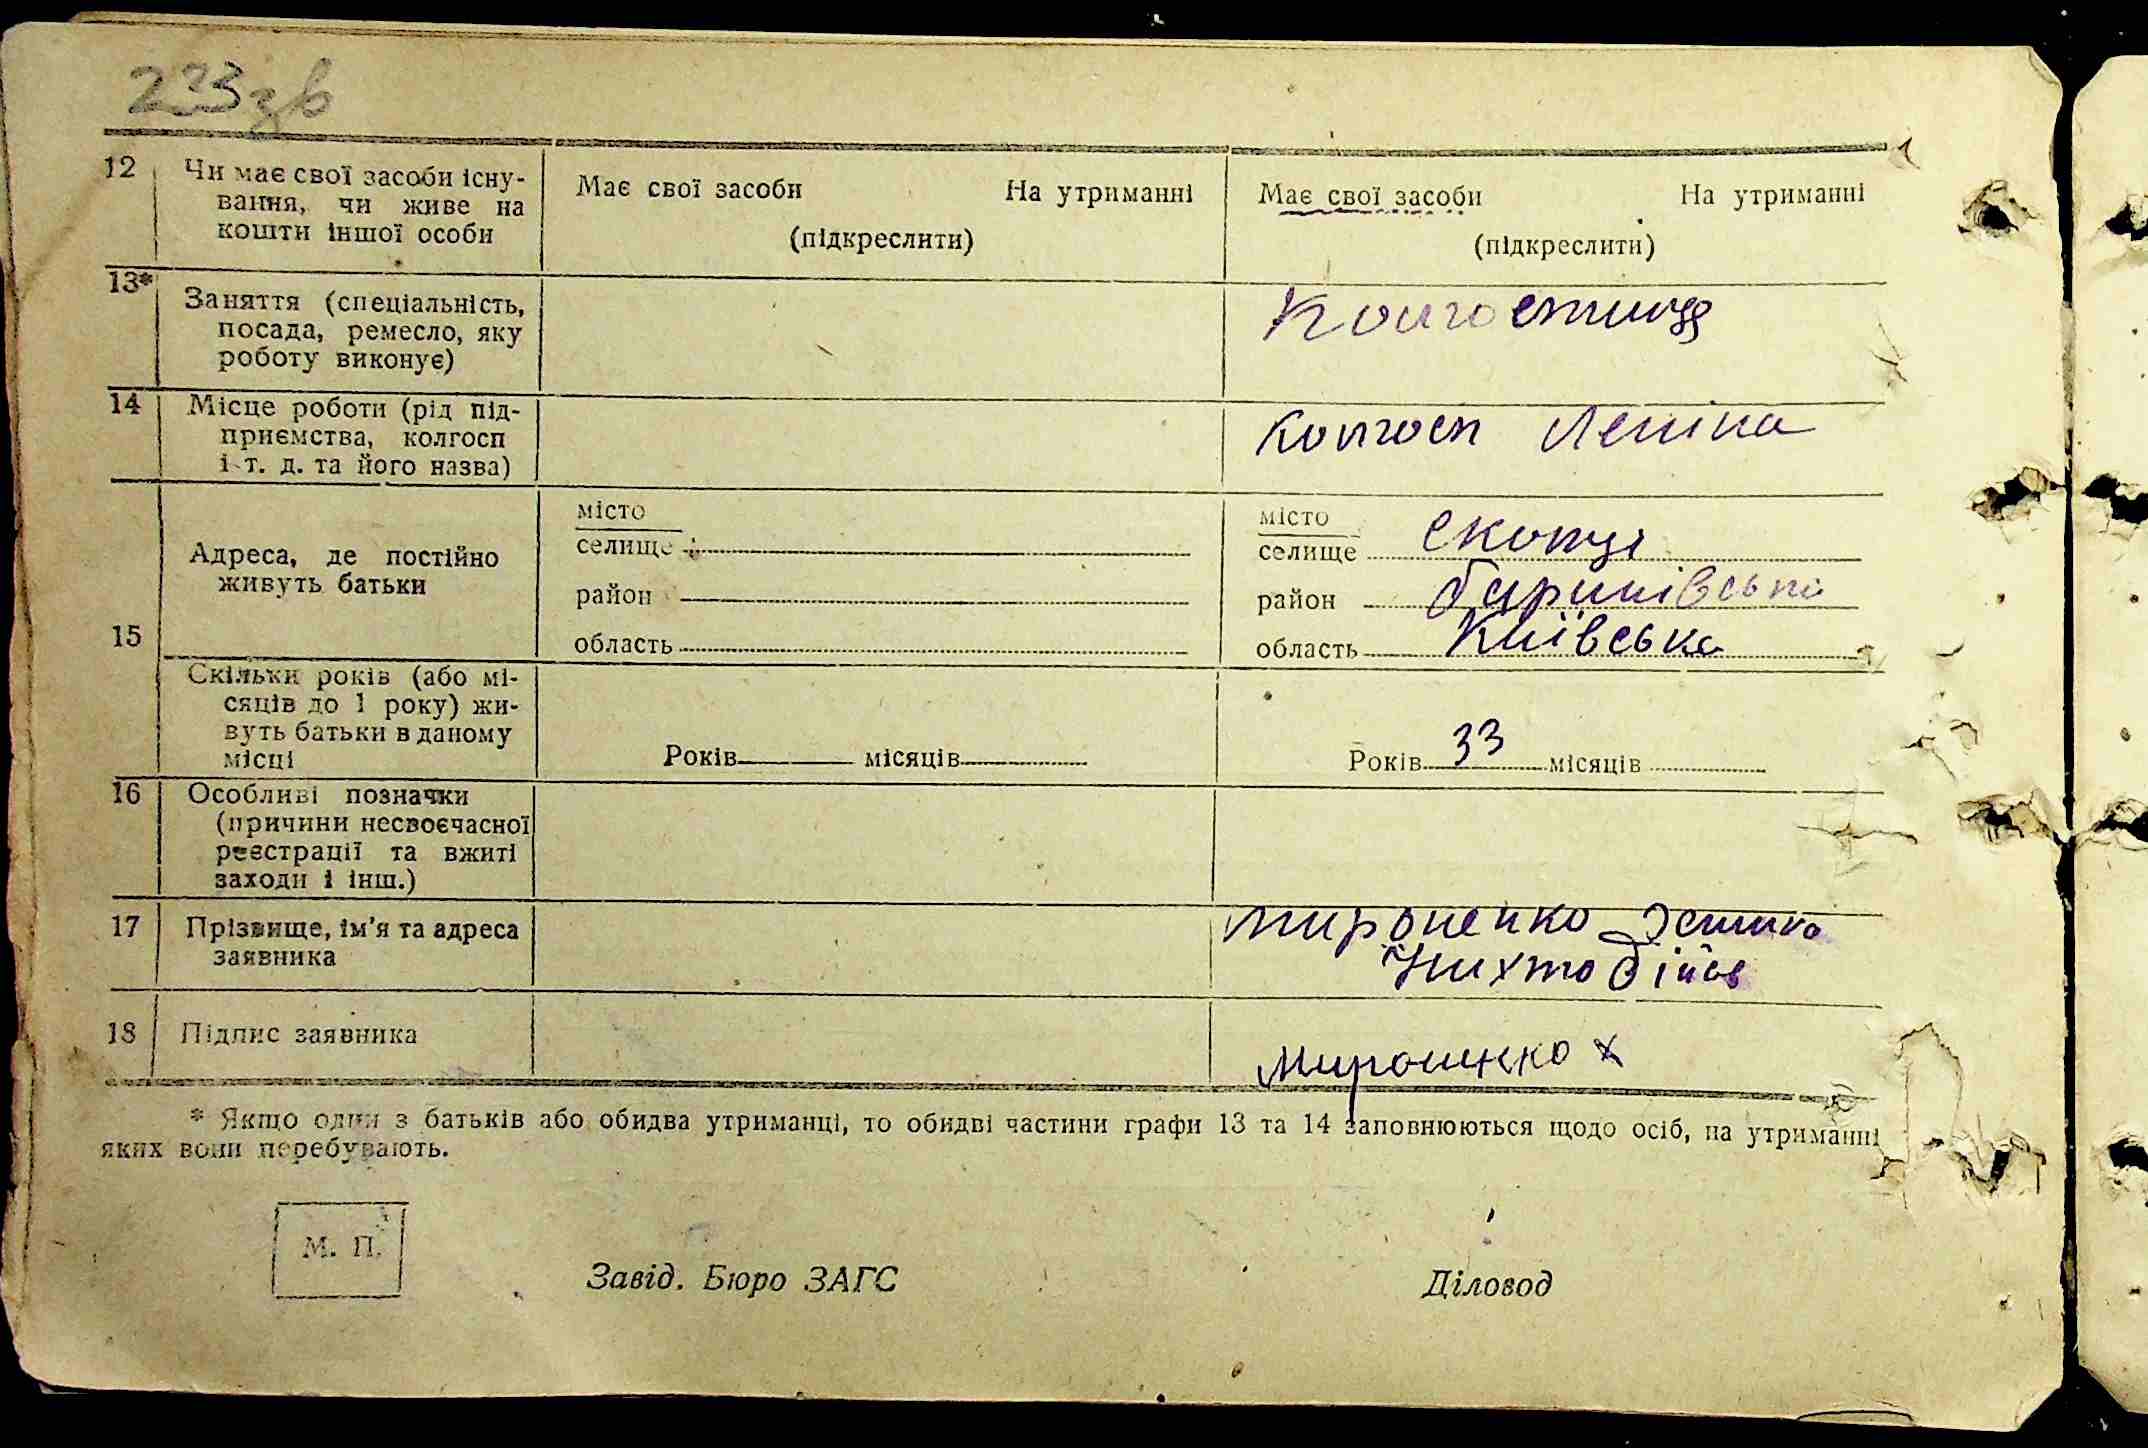 233 зв
12 Чи має свої засоби існу-
вання, чи живе на
кошти іншої особи
Має свої засоби На утриманні
(підкреслити)
Має свої засоби На утриманні
(підкреслити)
13* Заняття (спеціальність,
посада, ремесло, яку
роботу виконує)
Колгоспниця
14 Місце роботи (рід під-
приємства, колгосп
і т. д. та його назва)
Колгосп Леніна
15
Адреса, де постійно
живуть батьки
місто
селище
район
область
місто
селище Скопці
район Баришівська
область Київська
Скільки років (або мі-
сяців до 1 року) жи-
вуть батьки в даному
місці
Років місяців
Років 33 місяців
16 Особливі позначки
(причини несвоєчасної
реєстрації та вжиті
заходи і інш.)
17 Прізвище, ім'я та адреса
заявника
Мироненко
18 Підпис заявника
Мироненко х
* Якщо один з батьків або обидва утриманці, то обидві частини графи 13 та 14 заповнюються щодо осіб, на утриманні
яких вони перебувають.
М. П.
Завід. Бюро ЗАГС
Діловод